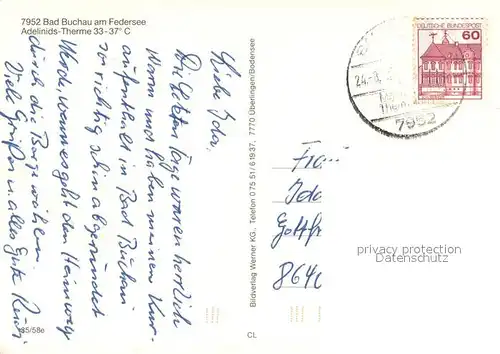 7952 Bad Buchau am Federsee
Adelinids-Therme 33-37° C
Liebe Ida,
Die letzten Tage waren herrlich
warm und haben meinen Kur-
aufenthalt in Bad Buchau
so richtig schön abgerundet
Werde wenn es geht den Heimweg
durch die Berge wählen.
Viele Grüße u. alles Gute
35/58e
Bildverlag Werner KG, Telefon 0 75 51/6 19 37, 7770 Überlingen/Bodensee
CL
DEUTSCHE BUNDESPOST
60
7952
Frau
Ida
8640
privacy protection
Datenschutz